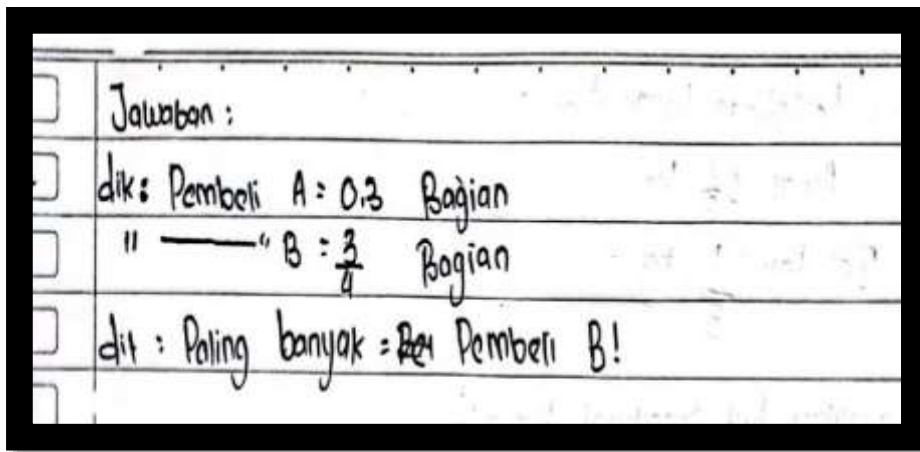 Jawaban :
dik : Pembeli A = 0.3 Bagian
" —— " B = 3/4 Bagian
dit : Paling banyak = Pembeli B!